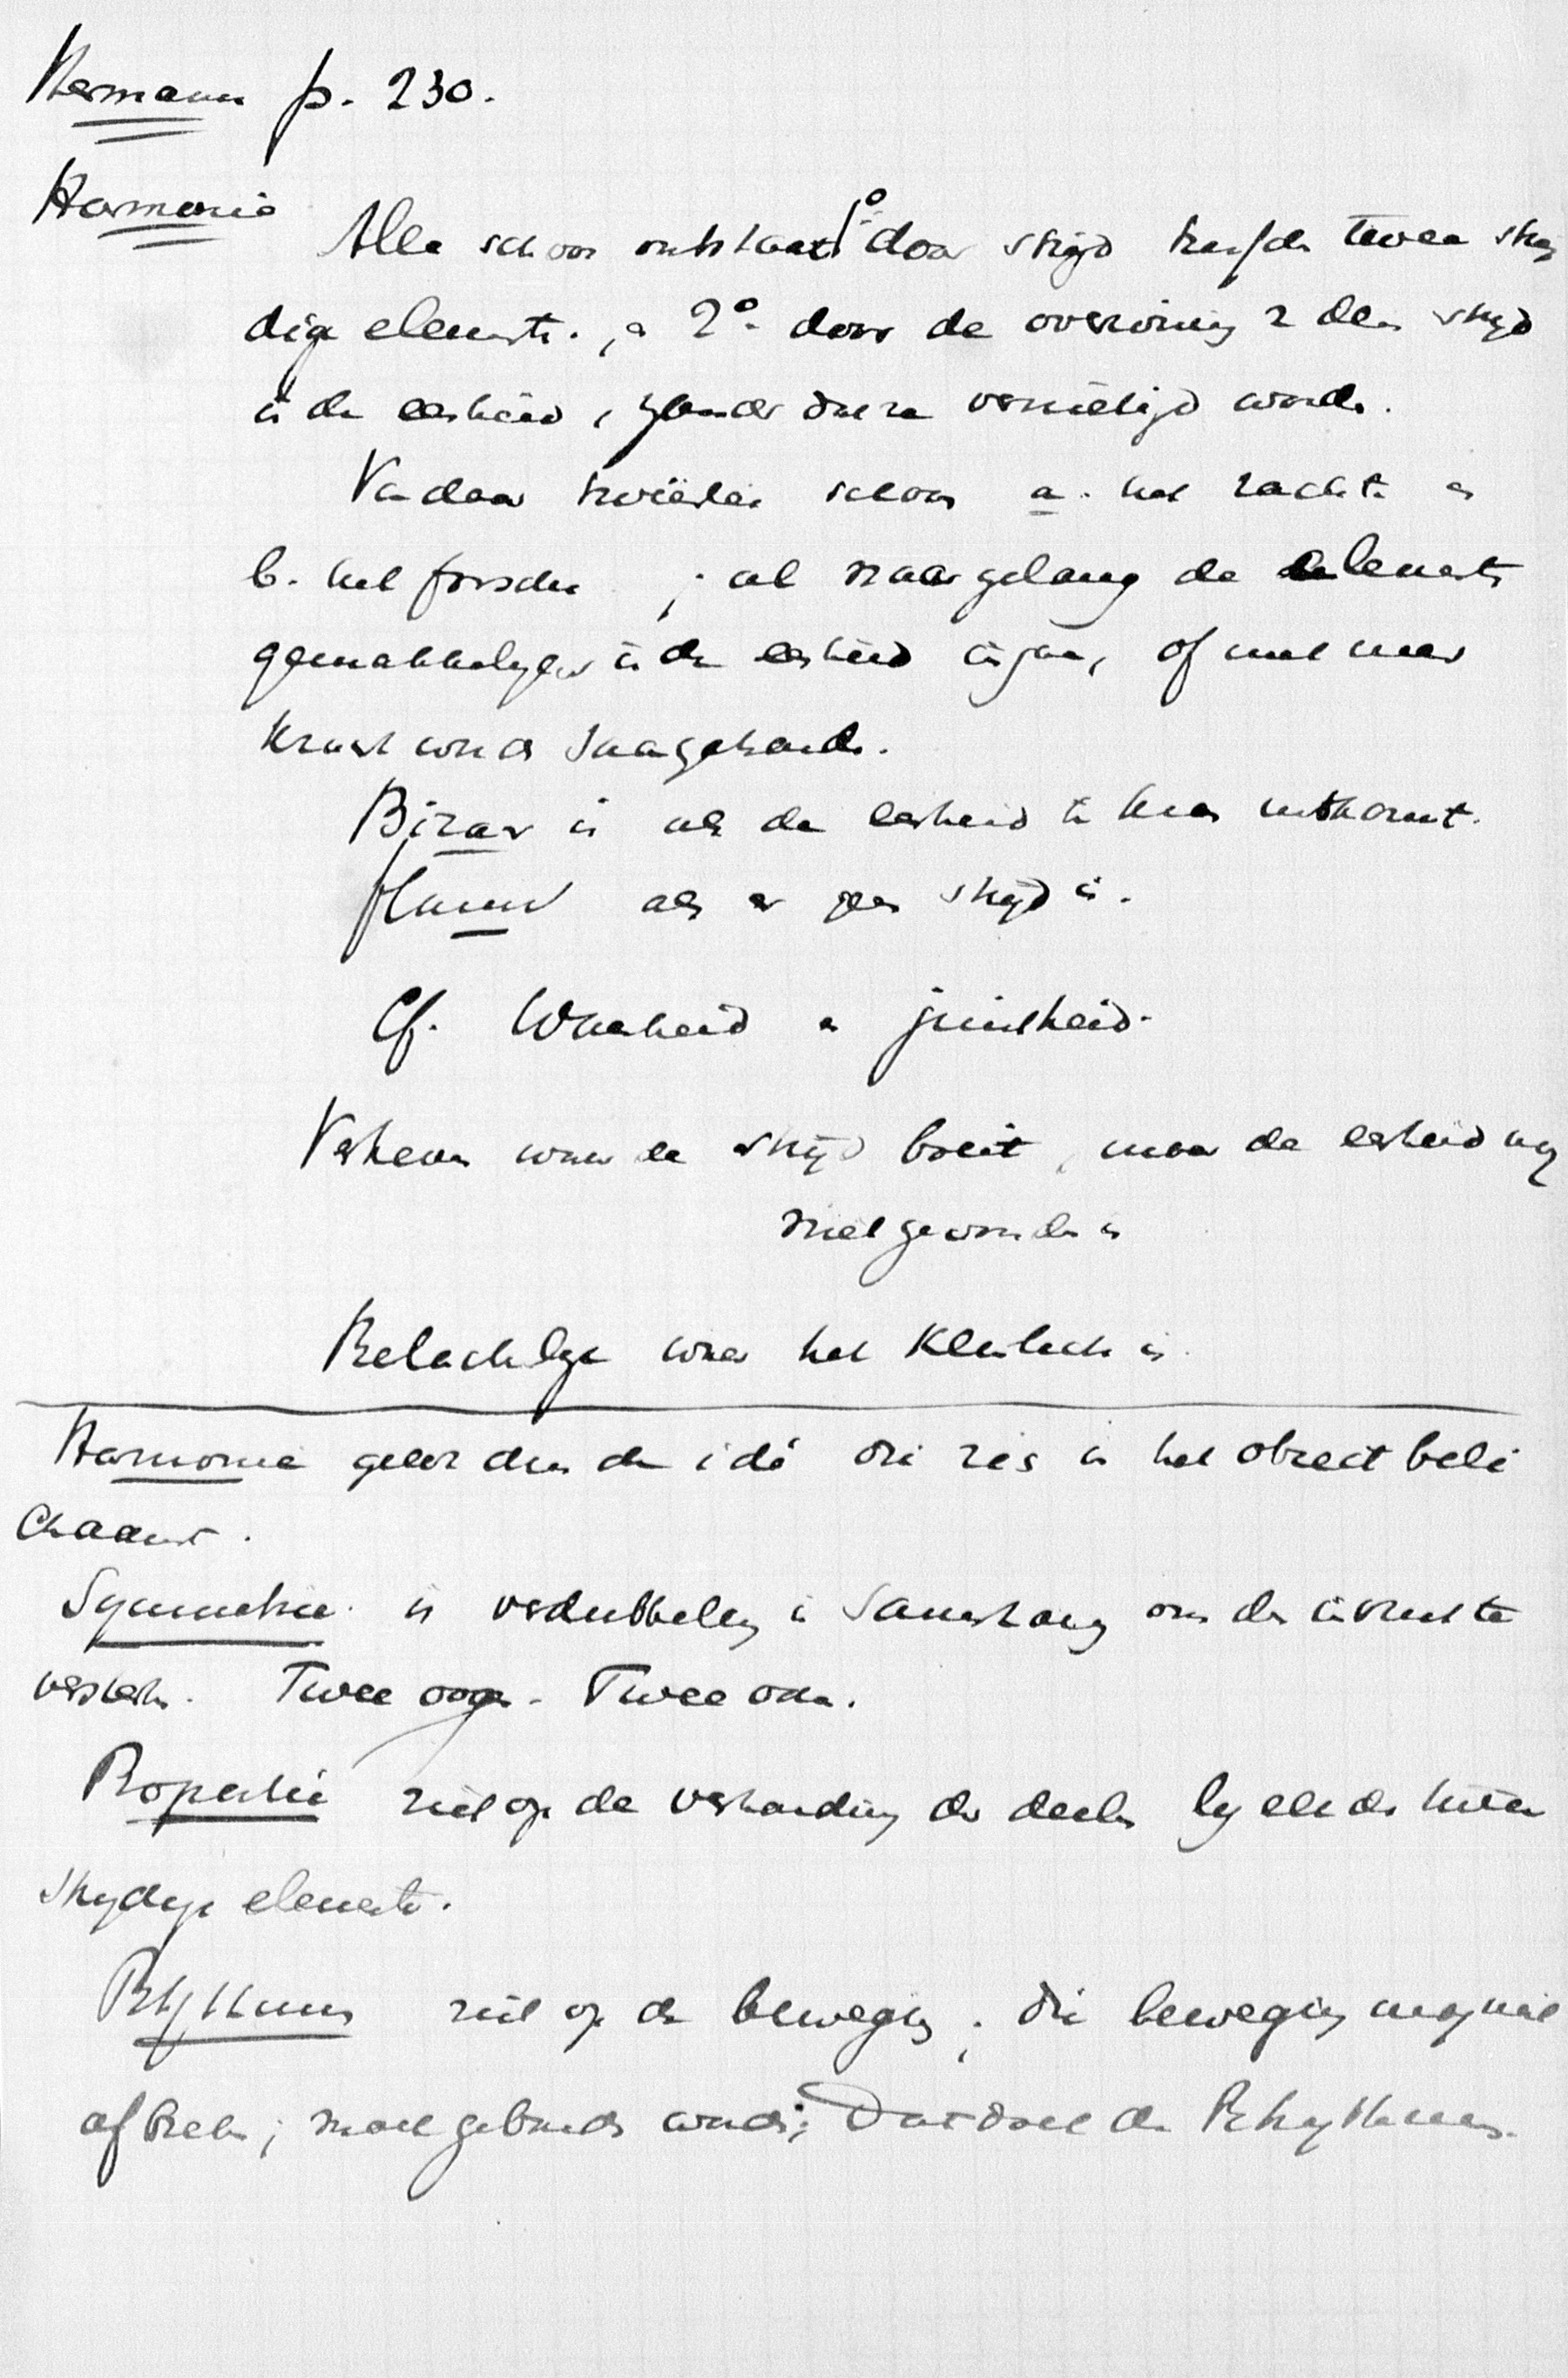 Hermann p. 230.
Harmonie
Alle schoon ontstaat 1º door strijd tusschen twee strij
dige elementen., en 2º. door de overwinning v den strijd
in de eenheid, zonder dat ze vernietigd worden.
Vandaar tweeërlei schoon a. het zachte en
b. het forsche ; al naar gelang de elementen
gemakkelijker in de eenheid ingaan, of met meer
kracht worden saamgehouden.
Bizar is als de eenheid te kort uitkomt.
flauw als er geen strijd is.
Cf. Waarheid en juistheid.
Verheven waar de strijd boeit, maar de eenheid nog
niet gevonden is
Belachelijk waar het kleinlich is.
Harmonie geeft dus de idé die zes in het object beli
chaamt.
Symmetrie is verdubbeling in samenhang om den indruk te
versterken. Twee oogen. Twee ooren.
Proportie ziet op de verhouding der deelen bij elk der
strijdige elementen.
Rhythmus ziet op de beweging; die beweging mag niet
afbreken; moet gebonden worden; Dat doet de Rhythmus.